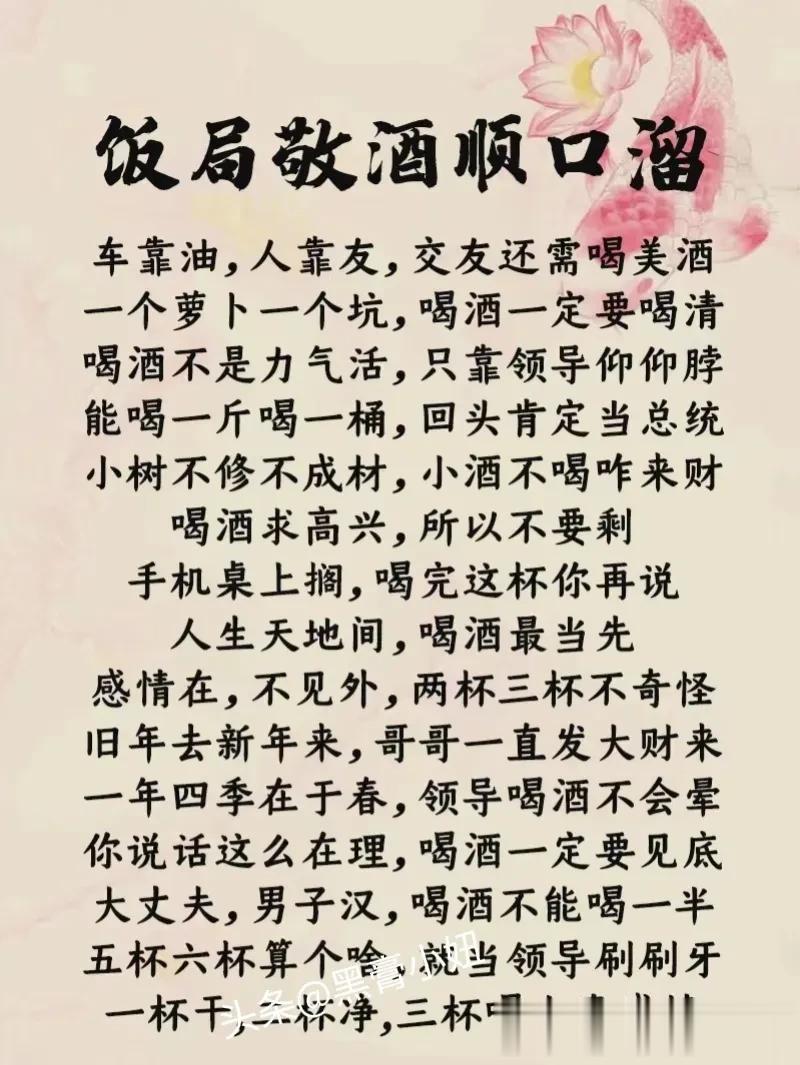 饭局敬酒顺口溜
车靠油,人靠友,交友还需喝美酒
一个萝卜一个坑,喝酒一定要喝清
喝酒不是力气活,只靠领导仰仰脖
能喝一斤喝一桶,回头肯定当总统
小树不修不成材,小酒不喝咋来财
喝酒求高兴,所以不要剩
手机桌上搁,喝完这杯你再说
人生天地间,喝酒最当先
感情在,不见外,两杯三杯不奇怪
旧年去新年来,哥哥一直发大财来
一年四季在于春,领导喝酒不会晕
你说话这么在理,喝酒一定要见底
大丈夫,男子汉,喝酒不能喝一半
五杯六杯算个啥,就当领导刷刷牙
一杯干,二杯净,三杯喝
头条@黑膏小妞